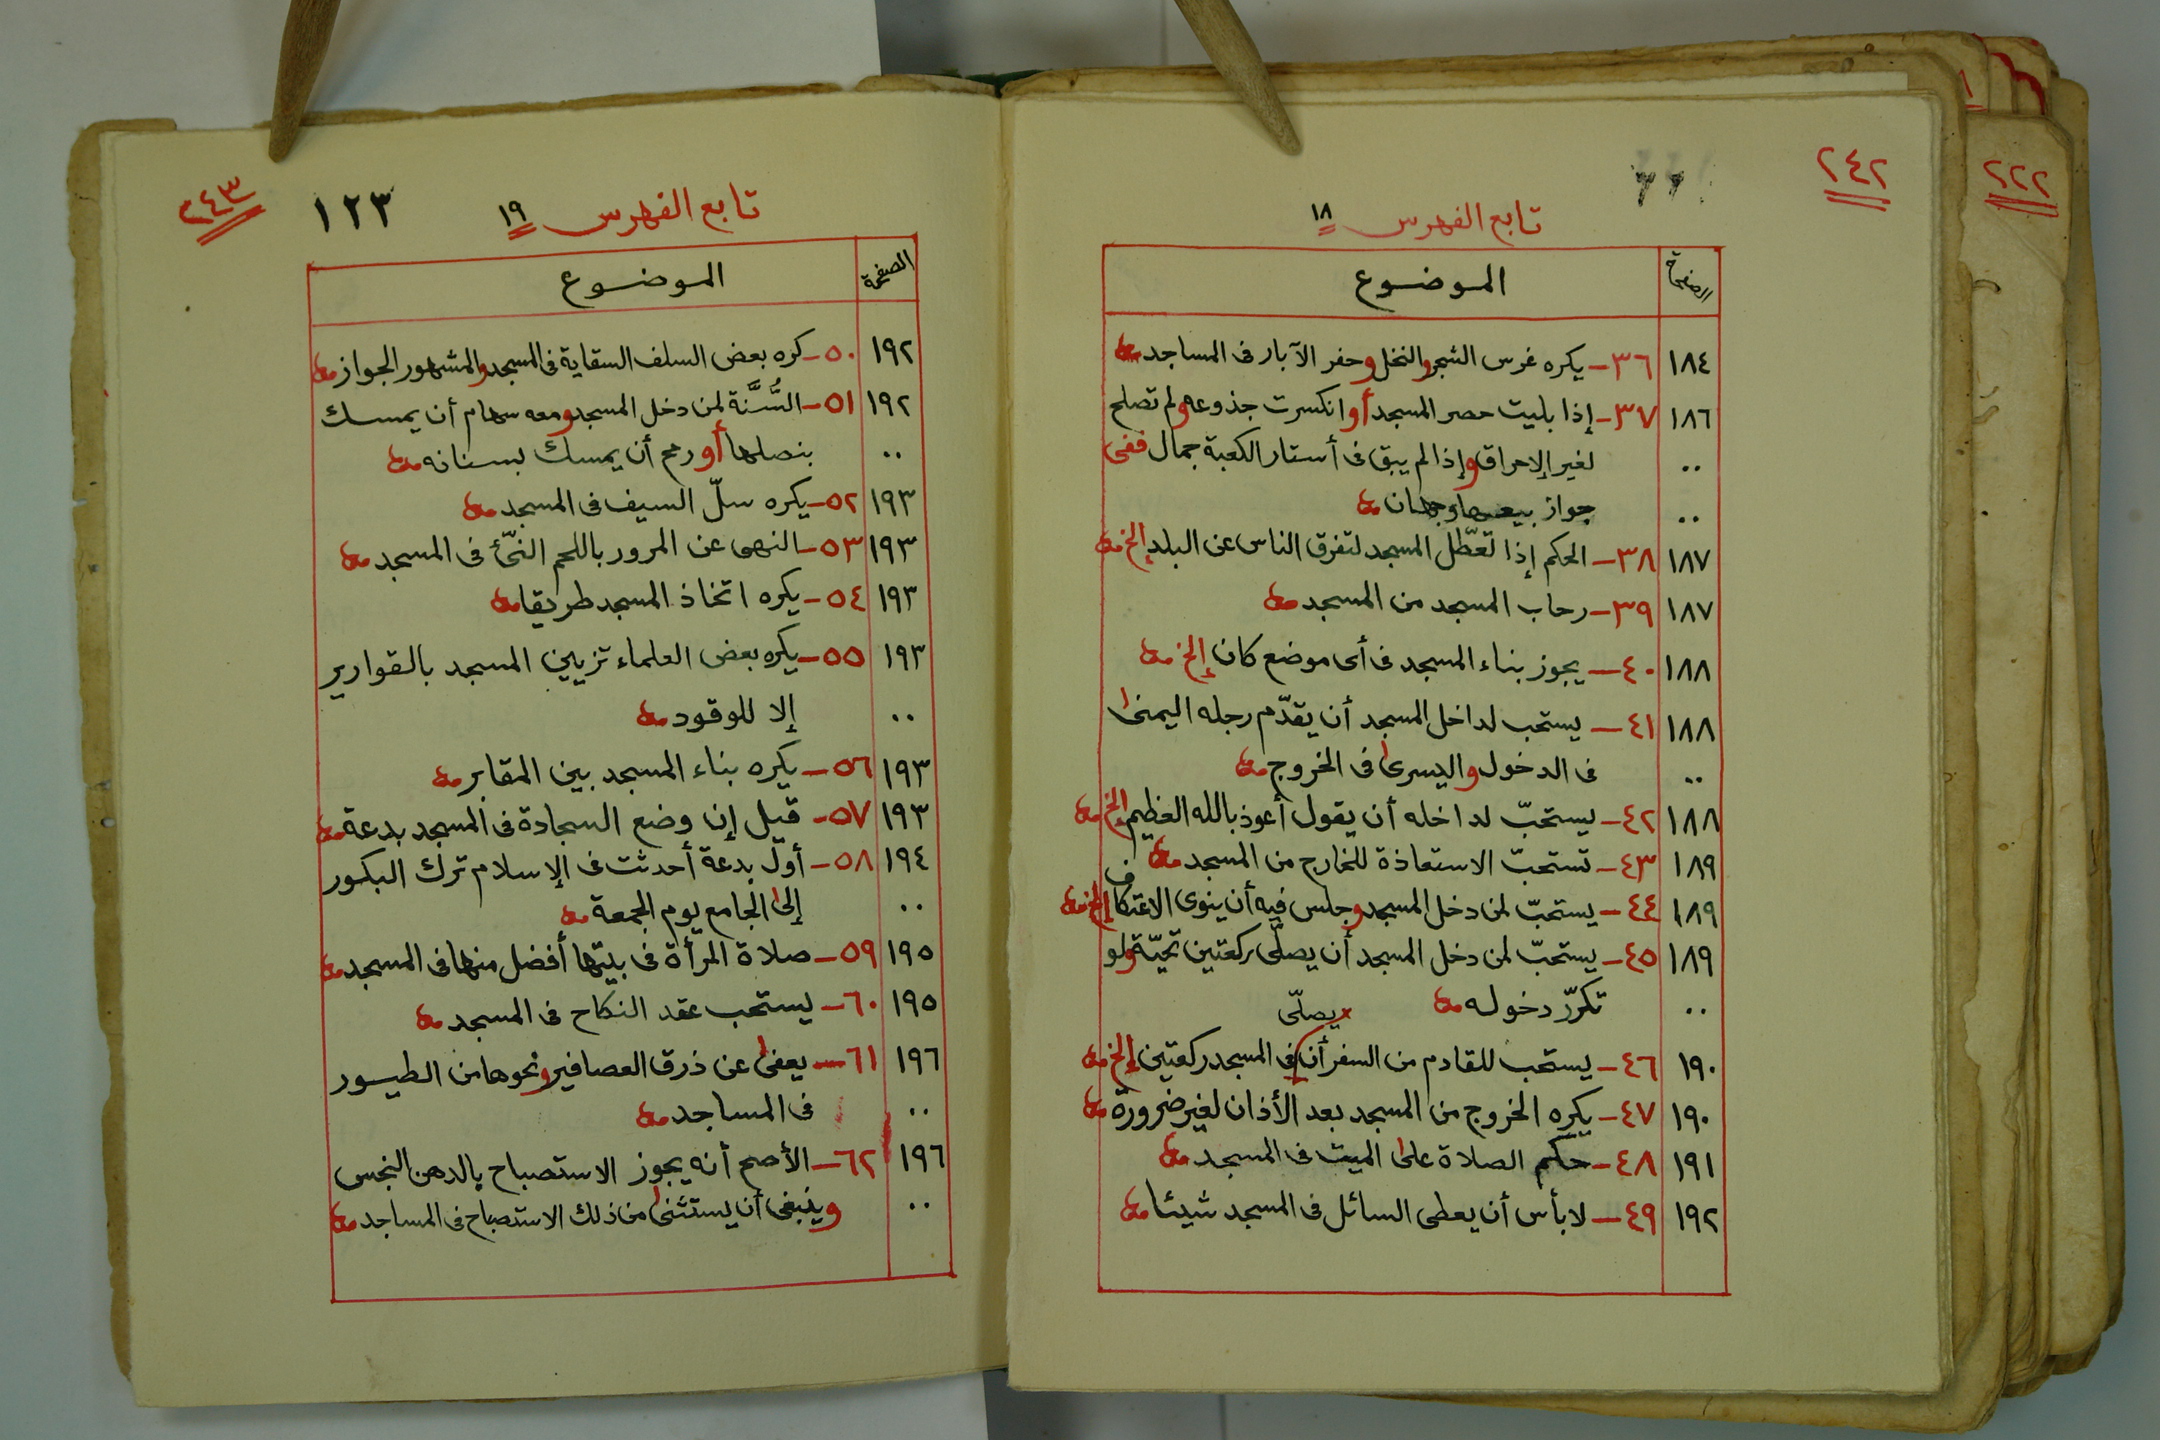 ٢٤٢
٢٢٢
تابع الفهرس ١٨
الصفحة الموضوع
١٨٤ ٣٦ - يكره غرس الشجر والنخل وحفر الآبار فى المساجد
١٨٦ ٣٧ - إذا بليت حصر المسجد أو انكسرت جذوعه ولم تصلح
.. لغير الإحراق وإذا لم يبق فى أستار الكعبة جمال ففى
.. جواز بيعها وجهان
١٨٧ ٣٨ - الحكم إذا تعطّل المسجد لتفرق الناس عن البلد إلخ
١٨٧ ٣٩ - رحاب المسجد من المسجد
١٨٨ ٤٠ - يجوز بناء المسجد فى أى موضع كان إلخ
١٨٨ ٤١ - يستحب لداخل المسجد أن يقدّم رجله اليمنى
.. فى الدخول واليسرى فى الخروج
١٨٨ ٤٢ - يستحبّ لداخله أن يقول أعوذ بالله العظيم إلخ
١٨٩ ٤٣ - تستحبّ الاستعاذة للخارج من المسجد
١٨٩ ٤٤ - يستحبّ لمن دخل المسجد وجلس فيه أن ينوى الاعتكاف إلخ
١٨٩ ٤٥ - يستحبّ لمن دخل المسجد أن يصلّى ركعتين تحيّة ولو
.. تكرّر دخوله
١٩٠ ٤٦ - يستحب للقادم من السفر أن يصلّى فى المسجد ركعتين إلخ
١٩٠ ٤٧ - يكره الخروج من المسجد بعد الأذان لغير ضرورة
١٩١ ٤٨ - حكم الصلاة على الميت فى المسجد
١٩٢ ٤٩ - لا بأس أن يعطى السائل فى المسجد شيئا
٢٤٣
١٢٣
تابع الفهرس ١٩
الصفحة الموضوع
١٩٢ ٥٠ - كره بعض السلف السقاية فى المسجد والمشهور الجواز
١٩٢ ٥١ - السُّنَّة لمن دخل المسجد ومعه سهام أن يمسك
.. بنصلها أو رمح أن يمسك بسنانه
١٩٣ ٥٢ - يكره سلّ السيف فى المسجد
١٩٣ ٥٣ - النهى عن المرور باللحم النّئ فى المسجد
١٩٣ ٥٤ - يكره اتخاذ المسجد طريقا
١٩٣ ٥٥ - يكره بعض العلماء تزيين المسجد بالقوارير
.. إلا للوقود
١٩٣ ٥٦ - يكره بناء المسجد بين المقابر
١٩٣ ٥٧ - قيل إن وضع السجادة فى المسجد بدعة
١٩٤ ٥٨ - أول بدعة أحدثت فى الإسلام ترك البكور
.. إلى الجامع يوم الجمعة
١٩٥ ٥٩ - صلاة المرأة فى بيتها أفضل منها فى المسجد
١٩٥ ٦٠ - يستحب عقد النكاح فى المسجد
١٩٦ ٦١ - يعفى عن ذرق العصافير ونحوها من الطيور
.. فى المساجد
١٩٦ ٦٢ - الأصح أنه يجوز الاستصباح بالدهن النجس
.. وينبغى أن يستثنى من ذلك الاستصباح فى المساجد